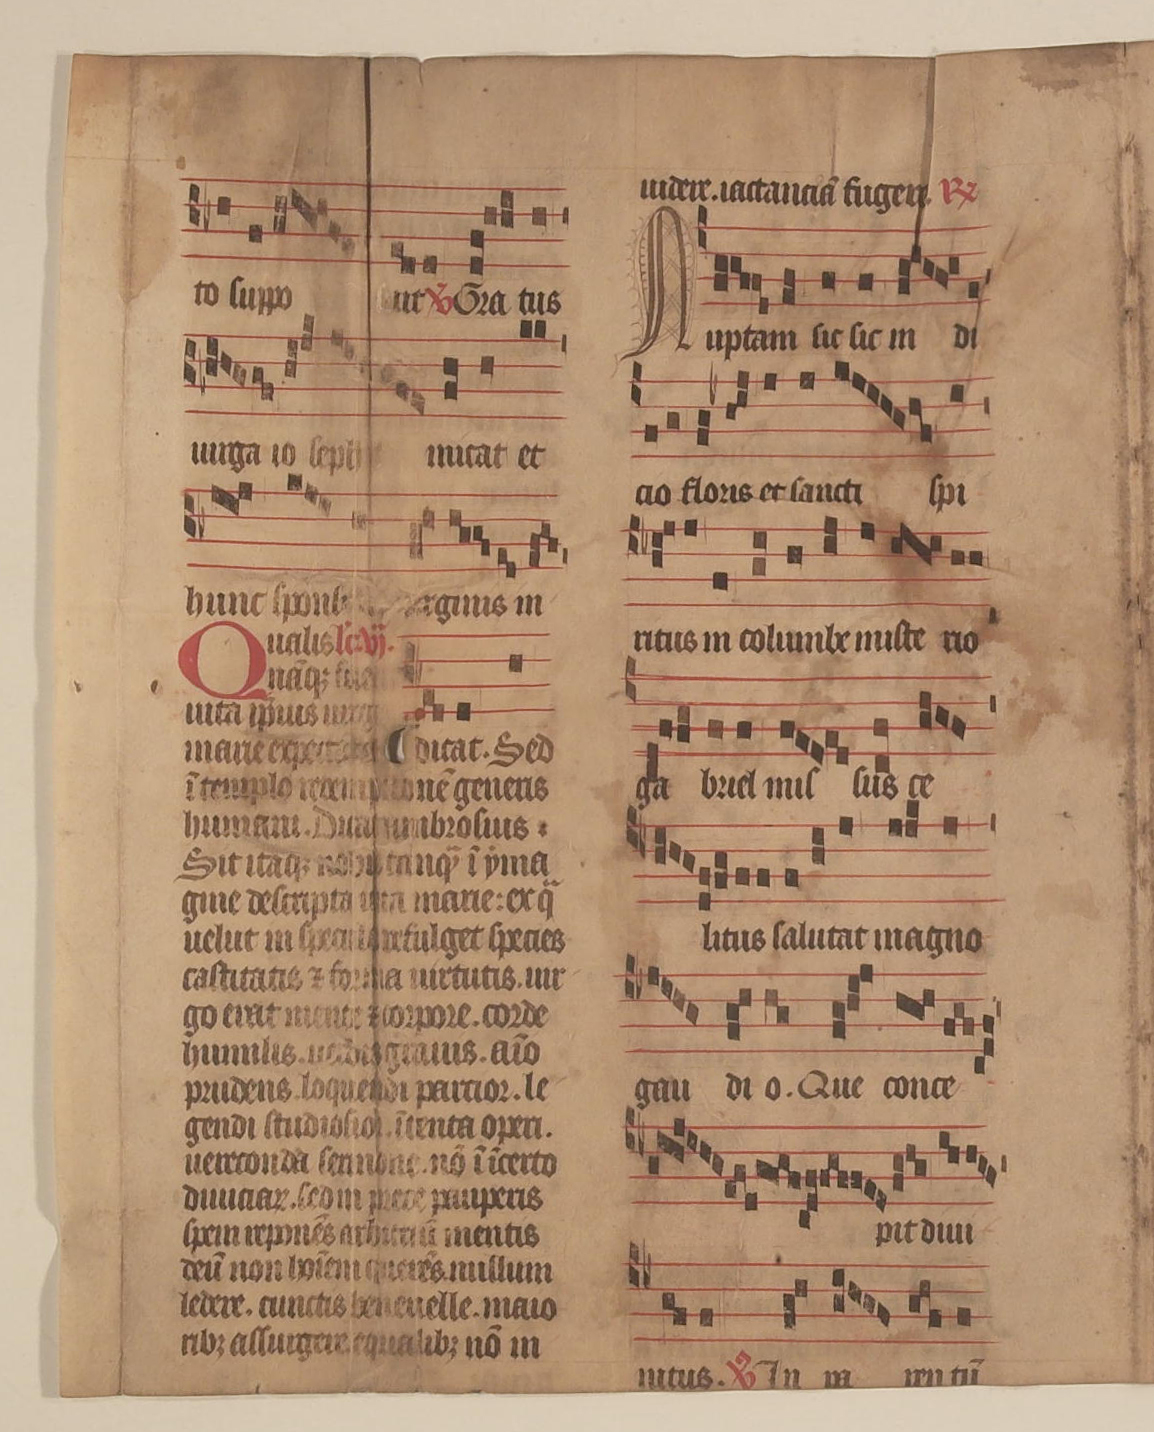 to suppo nit ℣ Gra tus
uirga io seph micat et
hunc spons uirginis in
Qualis lc̄. vj.
nāq; fuit
uita ipius uirg
marie expectat dicat. Sed
ī templo redemptionē generis
humani. Vnde ambrosius :
Sit itaq; nobis tanq̄ ī yma
gine descripta uita marie: ex q̄
uelut in speculo refulget species
castitatis ⁊ forma uirtutis. uir
go erat mente ⁊ corpore. corde
humilis. uerbis grauis. aīo
prudens. loquendi parcior. le
gendi studiosior. ītenta operi.
uerecunda sermone. nō ī īcerto
diuiciaꝝ. sed in prece pauperis
spem reponēs arbitriū mentis
deū non hoīem querēs. nullum
ledere. cunctis beneuelle. maio
rib; assurgere. equalib; nō in
uidere. iactanciā fugere. ℟
Nuptam sic sic in di
cio floris et sancti spi
ritus in columbe miste rio
ga briel mis sus ce
litus salutat magno
gau di o. Que conce
pit diui
nitus. ℣ In pa ren tū